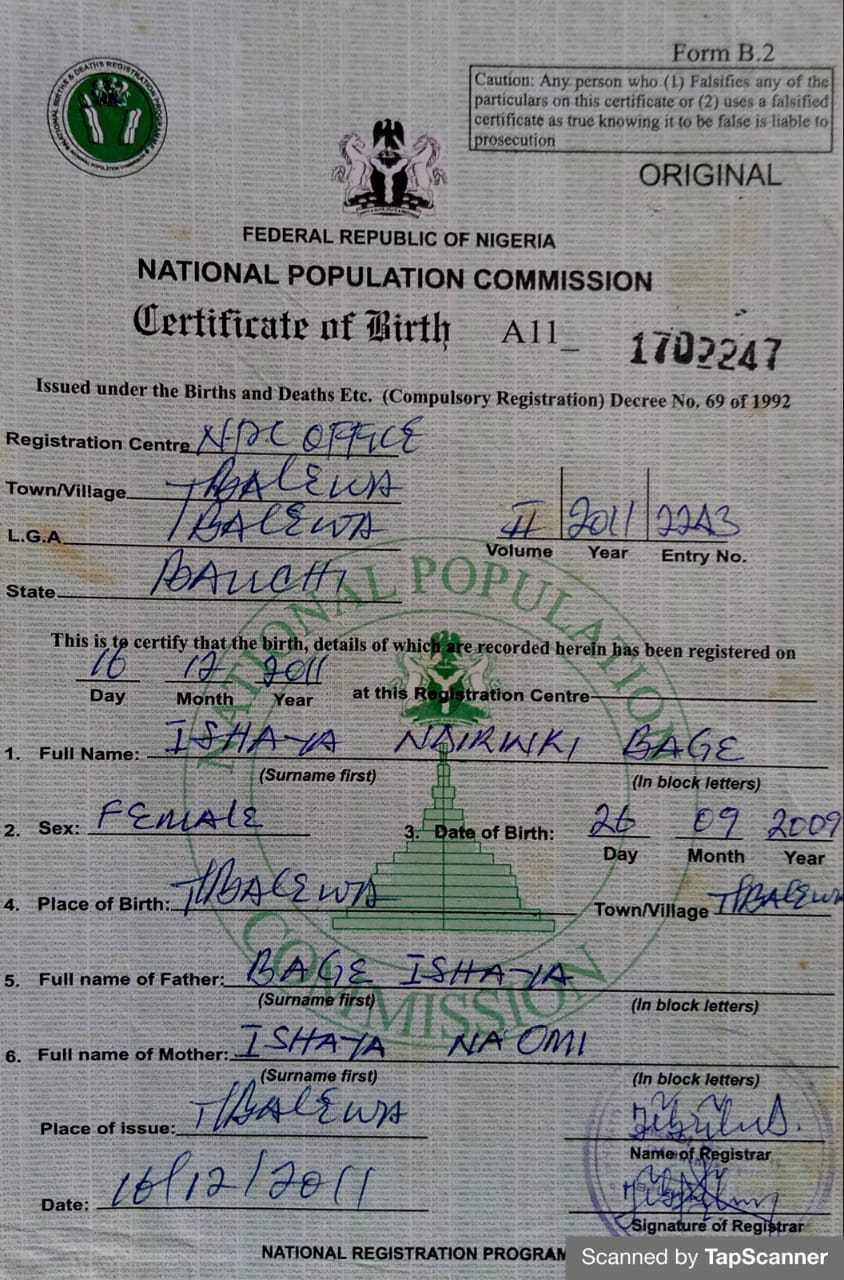 Form B.2
Caution: Any person who (1) Falsifies any of the
particulars on this certificate or (2) uses a falsified
certificate as true knowing it to be false is liable to
prosecution
ORIGINAL
FEDERAL REPUBLIC OF NIGERIA
NATIONAL POPULATION COMMISSION
Certificate of Birth A11_ 1702247
Issued under the Births and Deaths Etc. (Compulsory Registration) Decree No. 69 of 1992
Registration Centre NPC OFFICE
Town/Village T/BALEWA
L.G.A T/BALEWA
II 2011 2243
Volume Year Entry No.
State BAUCHI
NATIONAL POPULATION COMMISSION
This is to certify that the birth, details of which are recorded herein has been registered on
16 12 2011
Day Month Year at this Registration Centre
1. Full Name: ISHAYA BAGE
(Surname first) (In block letters)
2. Sex: FEMALE 3. Date of Birth: 26 09 2009
Day Month Year
4. Place of Birth: T/BALEWA Town/Village T/BALEWA
5. Full name of Father: BAGE ISHAYA
(Surname first) (In block letters)
6. Full name of Mother: ISHAYA NAOMI
(Surname first) (In block letters)
Place of issue: T/BALEWA
Name of Registrar
Date: 16/12/2011
Signature of Registrar
NATIONAL REGISTRATION PROGRAM
Scanned by TapScanner